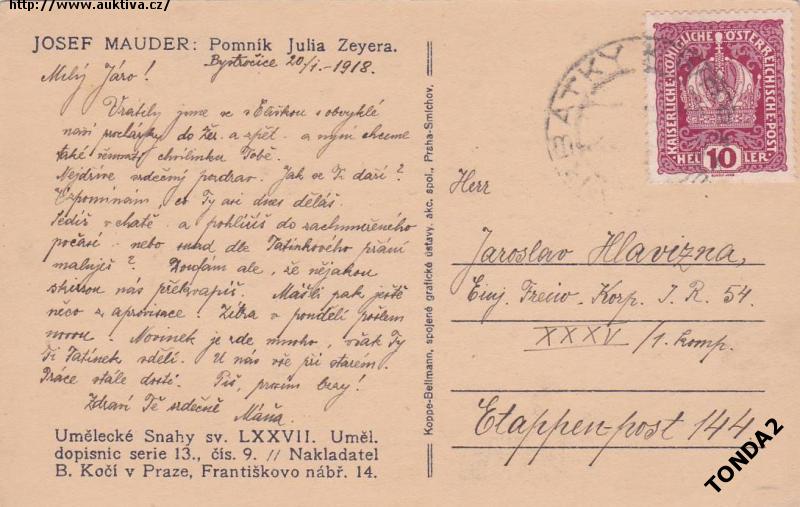 http://www.auktiva.cz/
JOSEF MAUDER: Pomník Julia Zeyera.
Bystročice 20/1.-1918.
Milý Járo!
Vrátily jsme se s Eliškou s obvyklé
naší procházky do Žer. a zpět - a nyní chceme
také věnovat chvilinku Tobě.
Nejdříve srdečný pozdrav. Jak se Ti daří?
Vzpomínám, co Ty asi dnes děláš.
Sedíš v chatě a pohlížíš do zachmuřeného
počasí - nebo snad dle Tatínkového přání
maluješ? Doufám ale, že nějakou
skizzou nás překvapíš. Máš-li pak ještě
něco z aprovisace. Zítra v pondělí pošlem
novou. Novinek je zde mnoho, však Ty
Ti Tatínek sdělí. U nás vše při starém.
Práce stále dosti. Piš, prosím brzy!
Zdraví Tě srdečně Máňa.
Umělecké Snahy sv. LXXVII. Uměl.
dopisnic serie 13., čís. 9. // Nakladatel
B. Kočí v Praze, Františkovo nábř. 14.
Koppe-Bellmann, spojené grafické ústavy, akc. spol., Praha-Smíchov.
KAISERLICHE KÖNIGLICHE ÖSTERREICHISCHE POST
HELLER
10
BÁTKY
Herr
Jaroslav Hlavizna,
Einj. Freiw. Korp. I. R. 54.
XXXV/1. komp.
Etappen-post 144
TONDA2